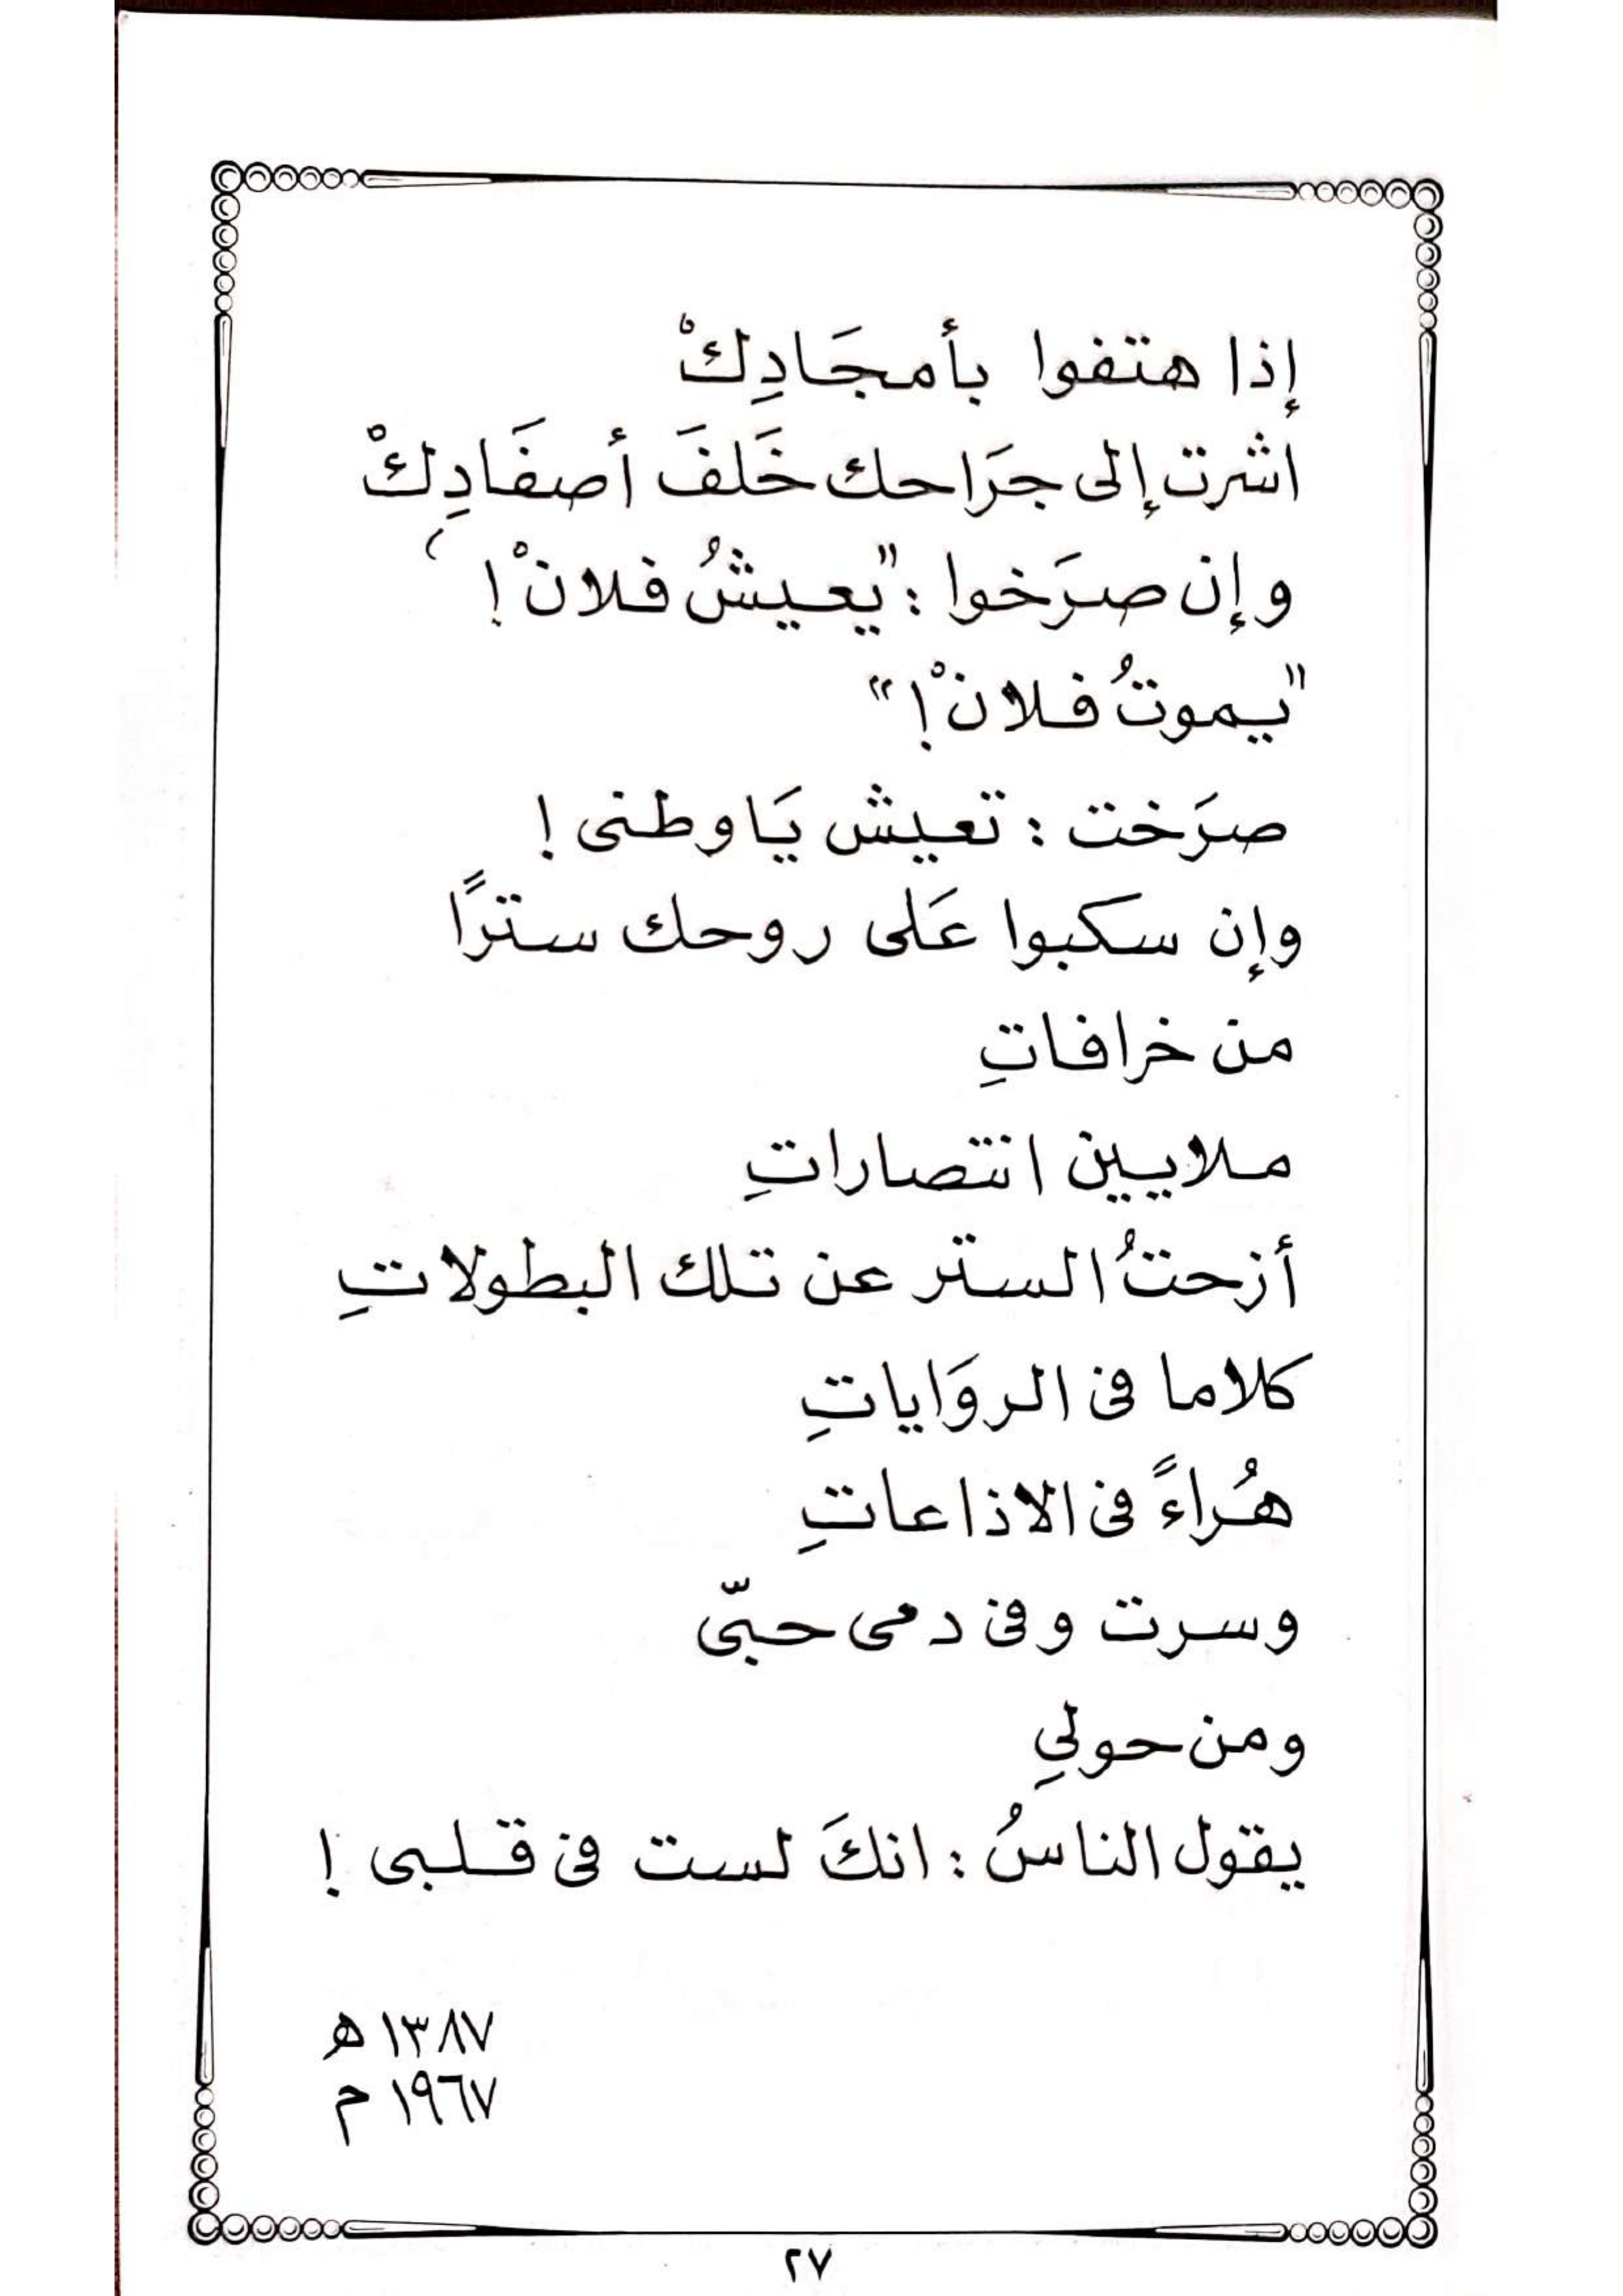 إذا هتفوا بأمجَادِكْ
اشرت إلى جرَاحك خَلفَ أصفَادِكْ
وإن صرَخوا : "يعيشُ فلانْ !
"يموتُ فلانْ !"
صرَخت : تعيش يَا وطنى !
وإن سكبوا عَلى روحك سترًا
من خرافاتِ
ملايين انتصاراتِ
أزحتُ الستر عن تلك البطولاتِ
كلاما فى الروَاياتِ
هُراءً فى الاذاعاتِ
وسرت وفى دمى حبّى
ومن حولىِ
يقول الناسُ : انكَ لست فى قلبى !
١٣٨٧ هـ
١٩٦٧ م
٢٧